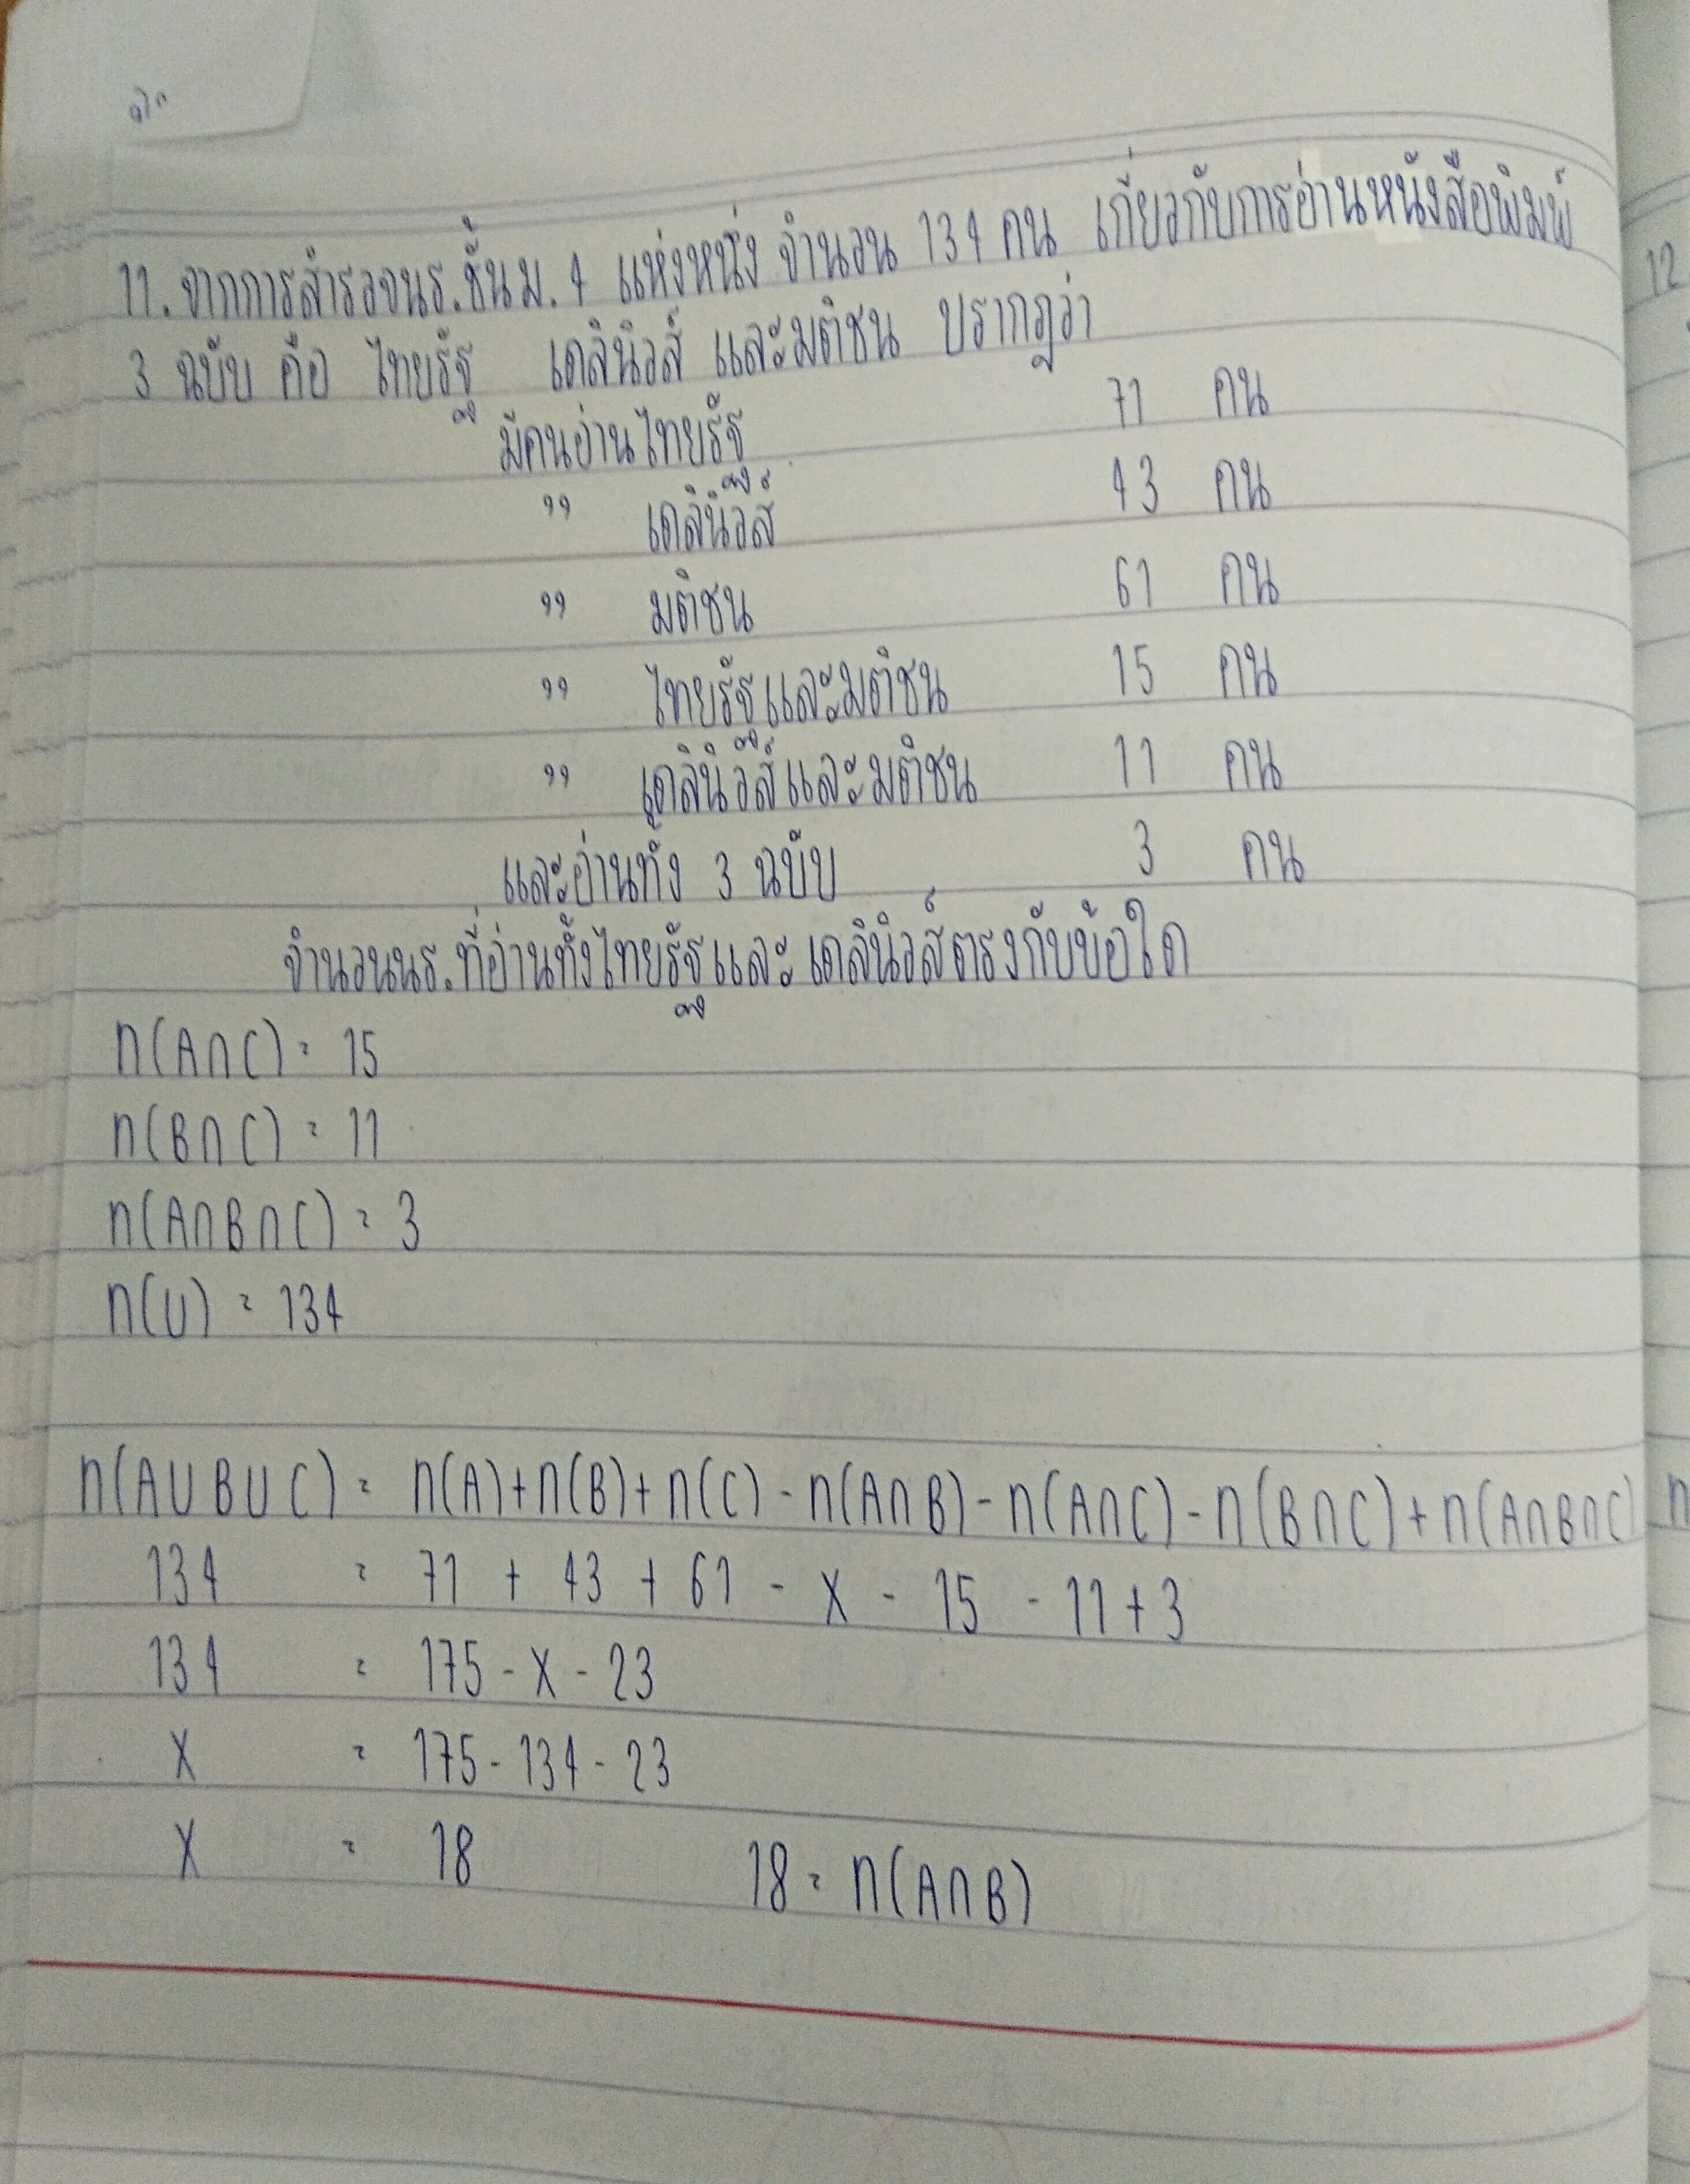 11. จากการสำรวจนร.ชั้นม.4 แห่งหนึ่ง จำนวน 134 คน เกี่ยวกับการอ่านหนังสือพิมพ์
3 ฉบับ คือ ไทยรัฐ เดลินิวส์ และมติชน ปรากฎว่า
มีคนอ่านไทยรัฐ 71 คน
" เดลินิวส์ 43 คน
" มติชน 61 คน
" ไทยรัฐและมติชน 15 คน
" เดลินิวส์และมติชน 11 คน
และอ่านทั้ง 3 ฉบับ 3 คน
จำนวนนร.ที่อ่านทั้งไทยรัฐและเดลินิวส์ตรงกับข้อใด
n(A∩C) = 15
n(B∩C) = 11
n(A∩B∩C) = 3
n(U) = 134
n(A∪B∪C) = n(A)+n(B)+n(C) - n(A∩B) - n(A∩C) - n(B∩C) + n(A∩B∩C)
134 = 71 + 43 + 61 - x - 15 - 11 + 3
134 = 175 - x - 23
x = 175 - 134 - 23
x = 18 18 = n(A∩B)
12
n